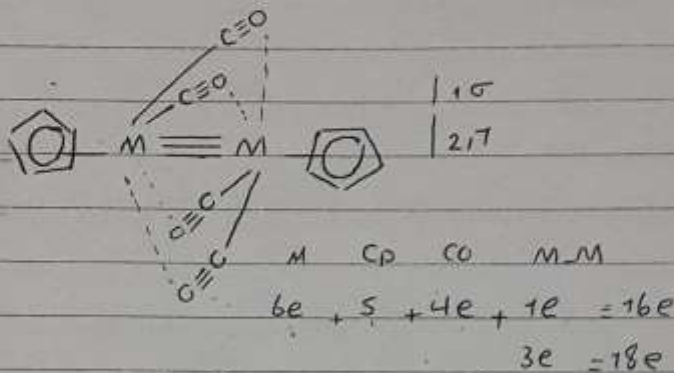 C≡O
C≡O
M≡M
1σ
2,7
O≡C
O≡C
M Cp CO M-M
6e + 5 + 4e + 1e = 16e
3e = 18e